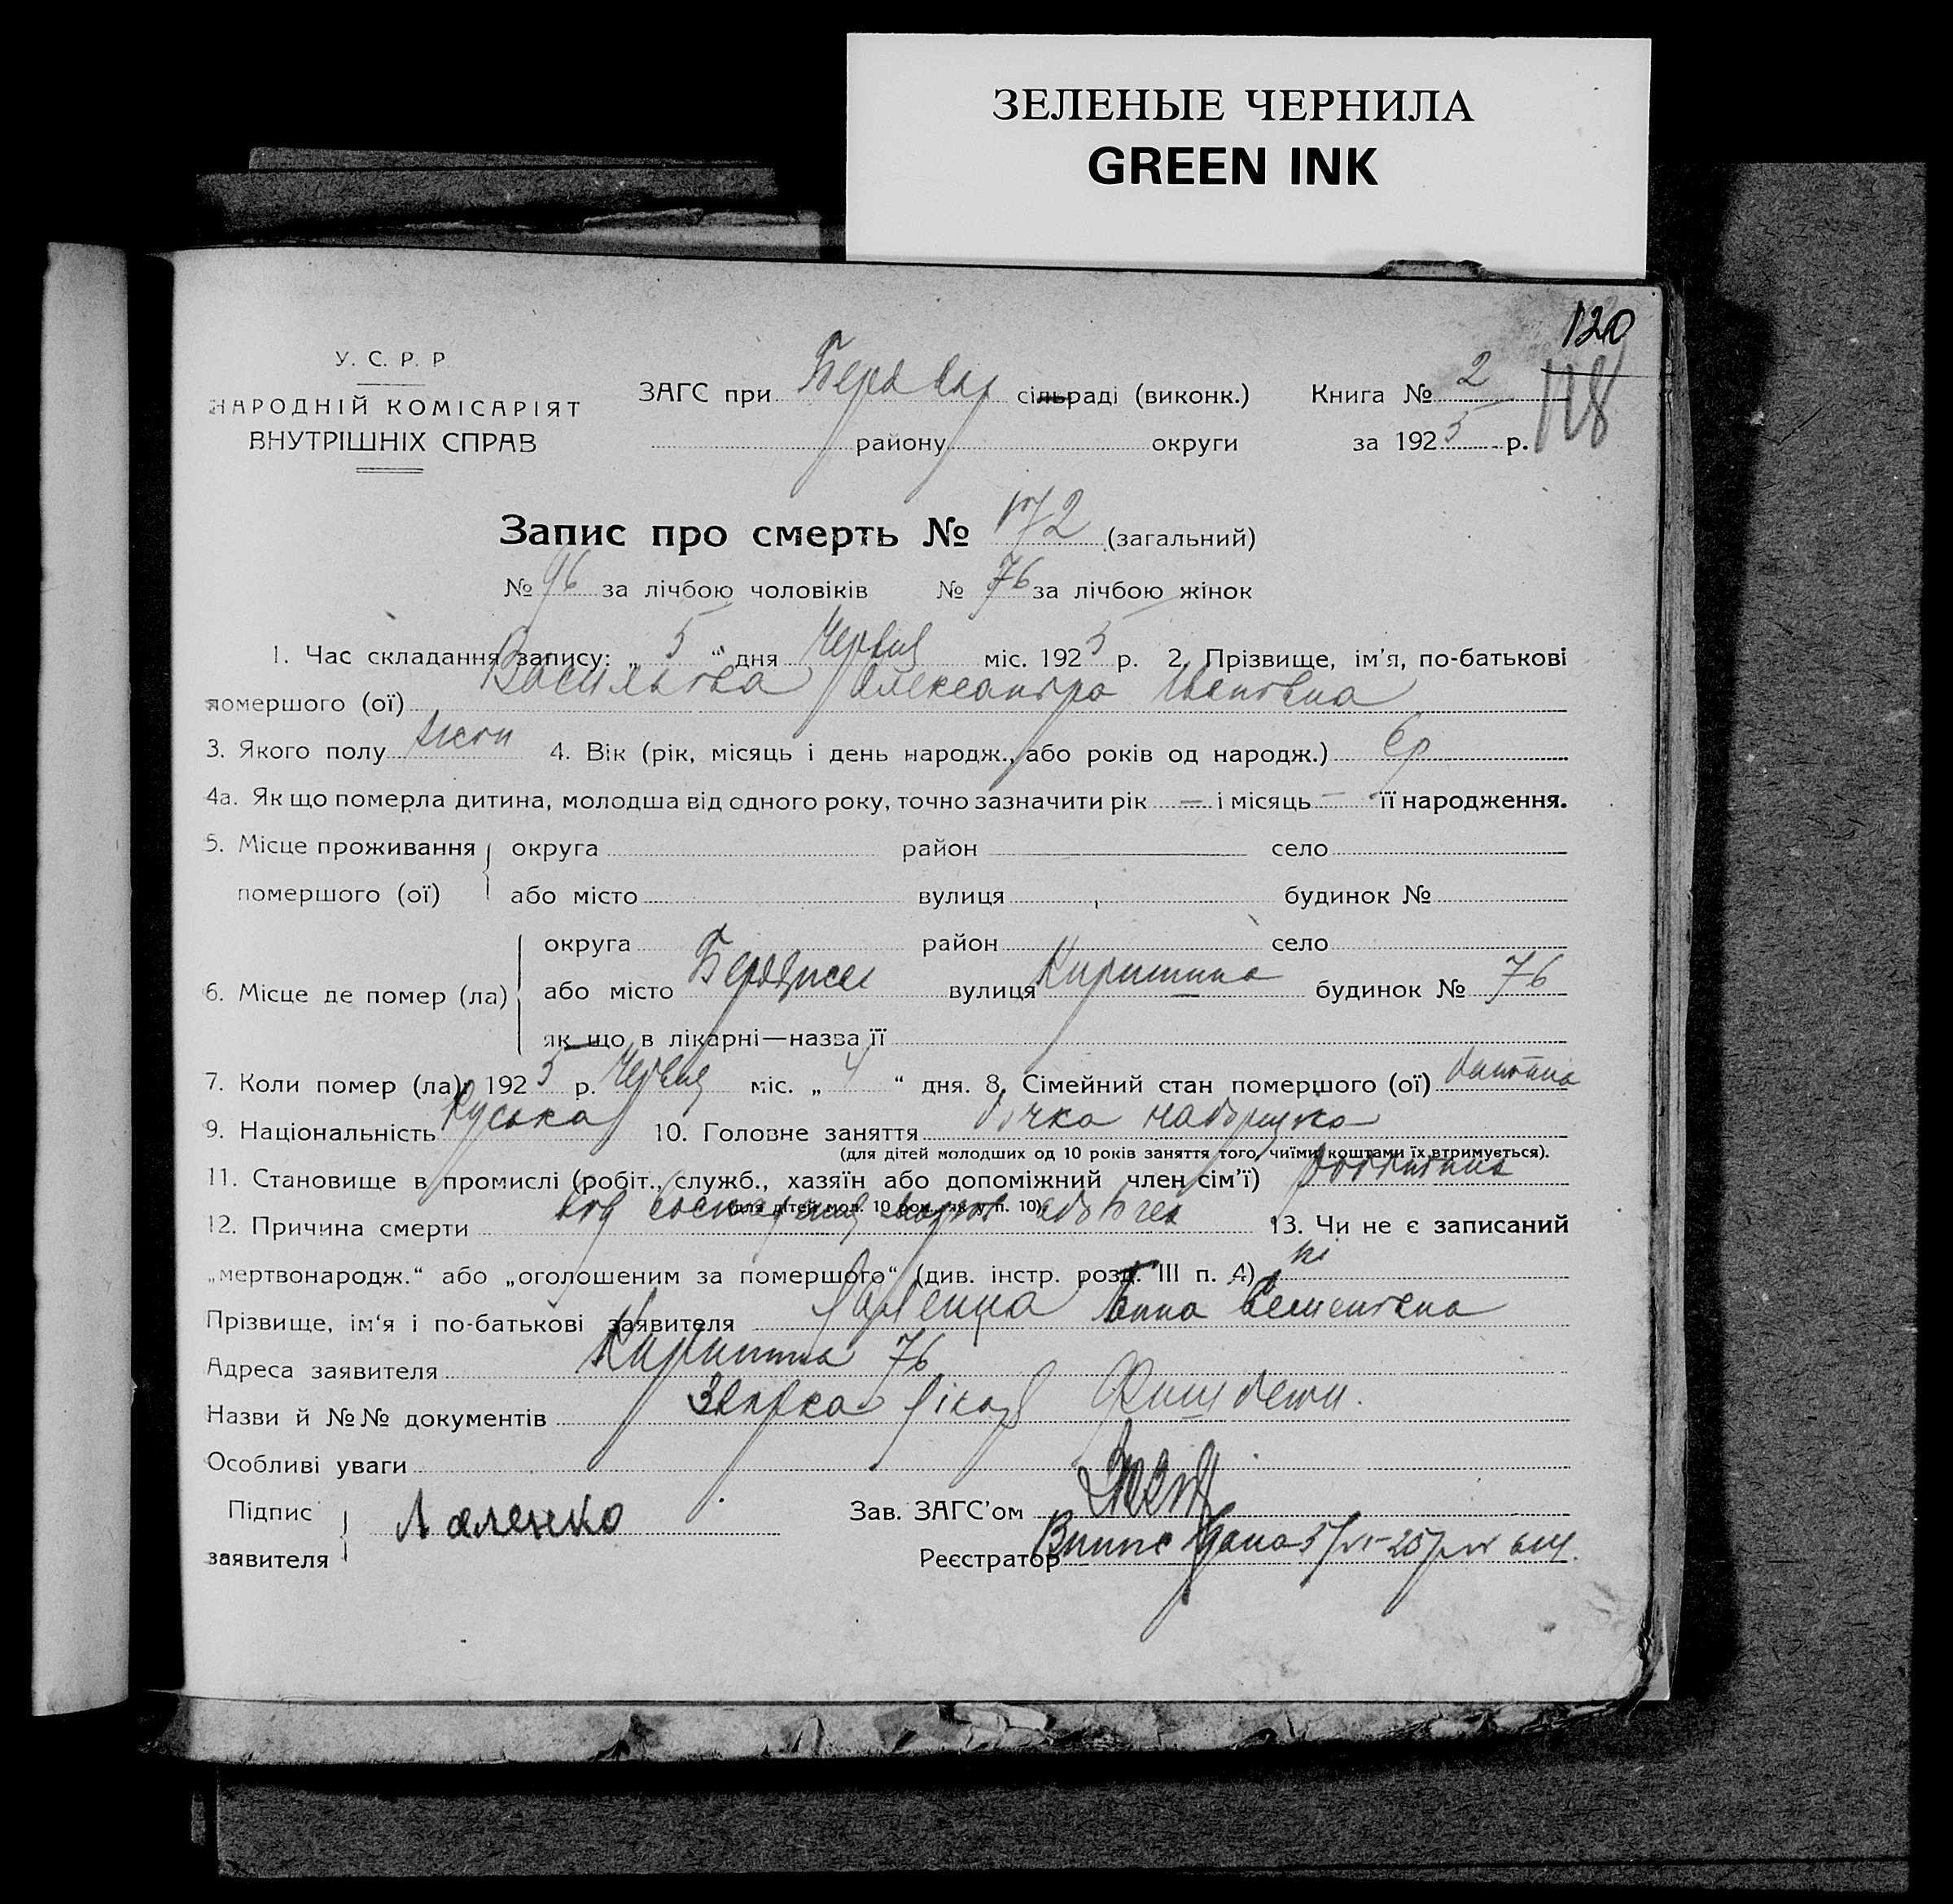 ЗЕЛЕНЫЕ ЧЕРНИЛА
GREEN INK
120
118
У. С. Р. Р
НАРОДНІЙ КОМІСАРІЯТ
ВНУТРІШНІХ СПРАВ
ЗАГС при сільраді (виконк.) Книга № 2
району округи за 1925 р.
Запис про смерть № 172 (загальний)
№ 96 за лічбою чоловіків № 76 за лічбою жінок
1. Час складання запису: „ 5 “ дня Червня міс. 1925 р. 2. Прізвище, ім'я, по-батькові
помершого (ої) Васильєва Александра Ивановна
3. Якого полу жін 4. Вік (рік, місяць і день народж., або років од народж.)
4а. Як що померла дитина, молодша від одного року, точно зазначити рік — і місяць — її народження.
5. Місце проживання округа район село
помершого (ої) або місто вулиця будинок №
округа район село
6. Місце де помер (ла) або місто Бердичев вулиця будинок № 76
як що в лікарні—назва її
7. Коли помер (ла): 1925 р. Червня міс. „ 4 “ дня. 8. Сімейний стан помершого (ої) дитина
9. Національність Руська 10. Головне заняття дочка
(для дітей молодших од 10 років заняття того, чиїми коштами їх втримується).
11. Становище в промислі (робіт., служб., хазяїн або допоміжний член сім'ї)
(для дітей мол. 10 рок. як у п. 10)
12. Причина смерти 13. Чи не є записаний
„мертвонародж.“ або „оголошеним за помершого“ (див. інстр. розд. III п. 4) ні
Прізвище, ім'я і по-батькові заявителя Анна Семеновна
Адреса заявителя 76
Назви й №№ документів
Особливі уваги
Підпис Лаленко Зав. ЗАГС'ом
заявителя Реєстратор